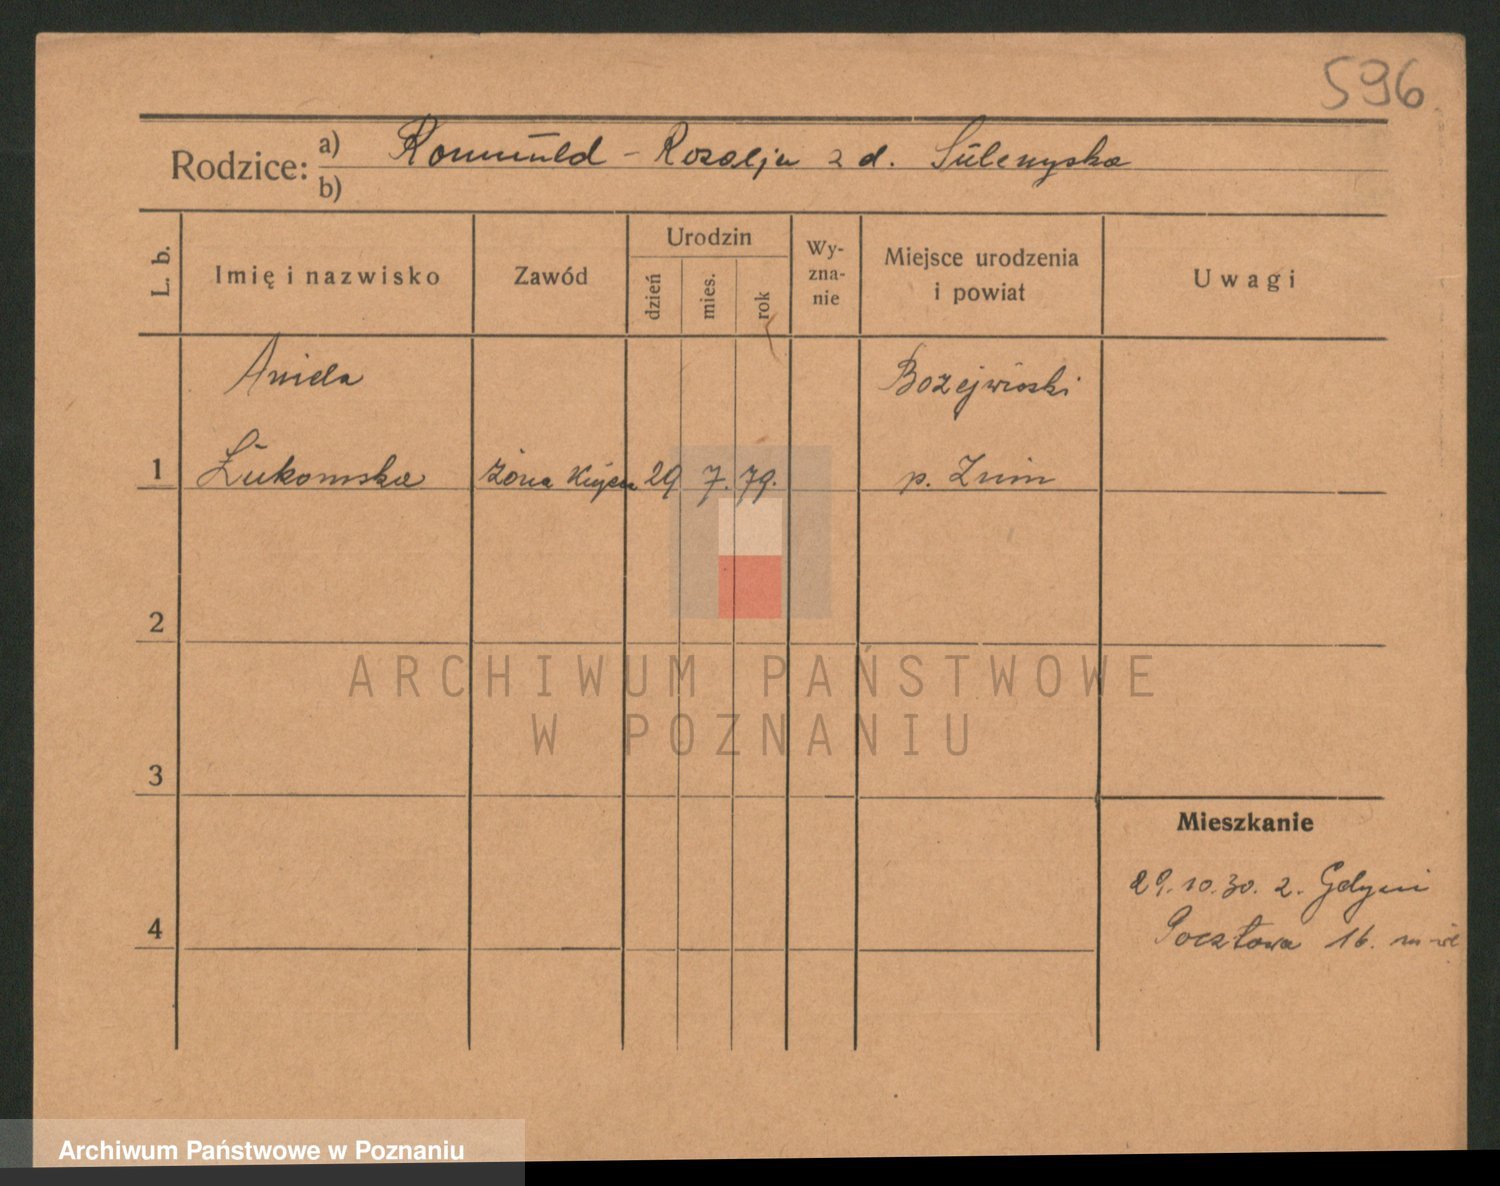 596
Rodzice: a) Romuald - Rozalja z d. Sulenyska
b)
L. b. Imię i nazwisko Zawód Urodzin dzień mies. rok Wy-zna-nie Miejsce urodzenia i powiat Uwagi
Aniela Bożejwioski
1 Łukomska żona 29 7. 79. p. Żnin
2
ARCHIWUM PAŃSTWOWE
W POZNANIU
3
Mieszkanie
29.10.30. z. Gdyni
4
Pocztowa 16.
Archiwum Państwowe w Poznaniu